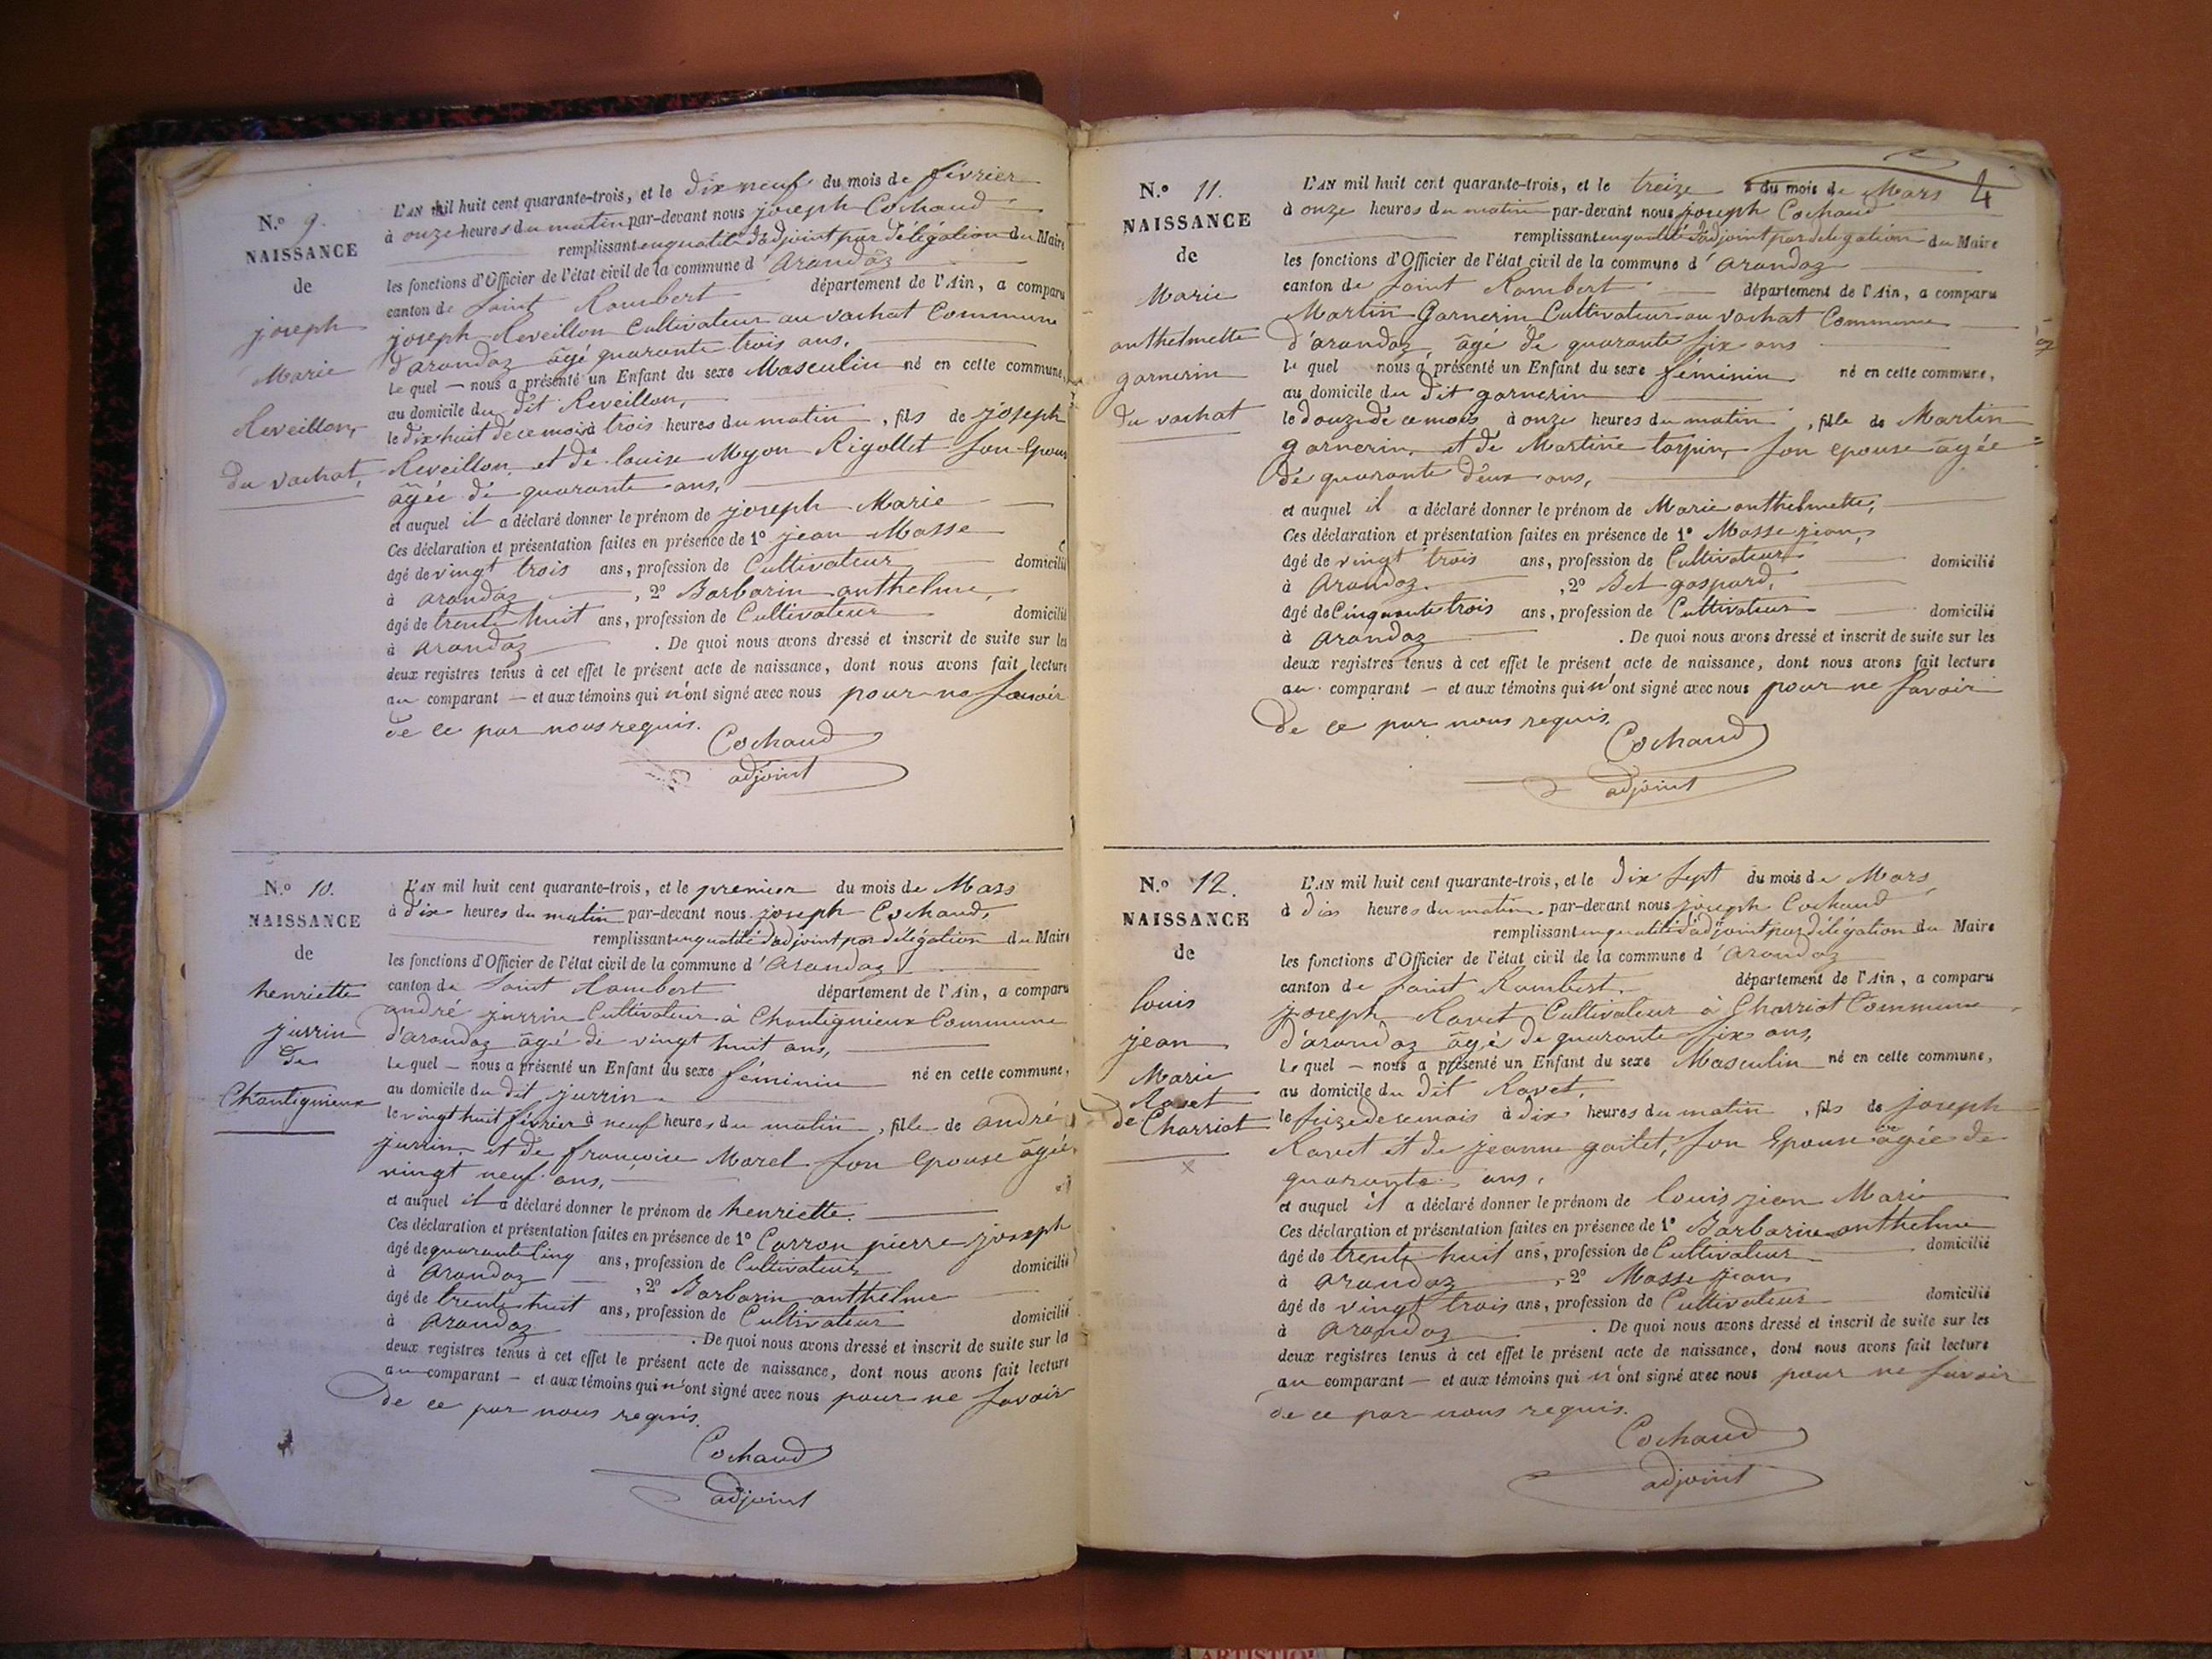 N.o 9.
NAISSANCE
de
joseph
Marie
Reveillon,
du vachat,
L'AN mil huit cent quarante-trois, et le dix neuf du mois de février
à onze heures du matin par-devant nous joseph Cochaud
remplissant en qualité d'adjoint par délégation du Maire
les fonctions d'Officier de l'état civil de la commune d'arandaz
canton de saint Rambert département de l'Ain, a comparu
joseph Reveillon Cultivateur au vachat Commune
d'arandaz âgé quarante trois ans,
Le quel — nous a présenté un Enfant du sexe Masculin né en cette commune,
au domicile du dit Reveillon,
le dix huit de ce mois à trois heures du matin, fils de joseph
Reveillon et de louise Myon Rigollet son Epouse
âgée de quarante ans,
et auquel il a déclaré donner le prénom de joseph Marie
Ces déclaration et présentation faites en présence de 1o jean Masse
âgé de vingt trois ans, profession de Cultivateur domicilié
à arandaz, 2o Barbarin anthelme,
âgé de trente huit ans, profession de Cultivateur domicilié
à arandaz. De quoi nous avons dressé et inscrit de suite sur les
deux registres tenus à cet effet le présent acte de naissance, dont nous avons fait lecture
au comparant — et aux témoins qui n'ont signé avec nous pour ne savoir
de ce par nous requis.
Cochaud
adjoint
N.o 10.
NAISSANCE
de
henriette
jurrin
de
Chantignieux
L'AN mil huit cent quarante-trois, et le premier du mois de Mars
à dix heures du matin par-devant nous joseph Cochaud,
remplissant en qualité d'adjoint par délégation du Maire
les fonctions d'Officier de l'état civil de la commune d'arandaz
canton de saint Rambert département de l'Ain, a comparu
andré jurrin Cultivateur à Chantignieux Commune
d'arandaz âgé de vingt huit ans,
Le quel — nous a présenté un Enfant du sexe féminin né en cette commune,
au domicile du dit jurrin
le vingt huit février à neuf heures du matin, fille de andré
jurrin et de françoise Morel son Epouse âgée
vingt neuf ans,
et auquel il a déclaré donner le prénom de henriette.
Ces déclaration et présentation faites en présence de 1o Carron pierre joseph
âgé de quarante Cinq ans, profession de Cultivateur domicilié
à arandaz, 2o Barbarin anthelme
âgé de trente huit ans, profession de Cultivateur domicilié
à arandaz. De quoi nous avons dressé et inscrit de suite sur les
deux registres tenus à cet effet le présent acte de naissance, dont nous avons fait lecture
au comparant — et aux témoins qui n'ont signé avec nous pour ne savoir
de ce par nous requis.
Cochaud
adjoint
4
N.o 11.
NAISSANCE
de
Marie
anthelmette
garnerin
du vachat
L'AN mil huit cent quarante-trois, et le treize du mois de Mars
à onze heures du matin par-devant nous joseph Cochaud
remplissant en qualité d'adjoint par délégation du Maire
les fonctions d'Officier de l'état civil de la commune d'arandaz
canton de saint Rambert département de l'Ain, a comparu
Martin Garnerin Cultivateur au vachat Commune
d'arandaz âgé de quarante six ans
Le quel nous a présenté un Enfant du sexe féminin né en cette commune,
au domicile du dit garnerin
le douze de ce mois à onze heures du matin, fille de Martin
garnerin, et de Martine tarpin, son epouse âgée
de quarante deux ans,
et auquel il a déclaré donner le prénom de Marie anthelmette,
Ces déclaration et présentation faites en présence de 1o Masse jean,
âgé de vingt trois ans, profession de Cultivateur domicilié
à arandaz, 2o Bet gaspard,
âgé de Cinquante trois ans, profession de Cultivateur domicilié
à arandaz. De quoi nous avons dressé et inscrit de suite sur les
deux registres tenus à cet effet le présent acte de naissance, dont nous avons fait lecture
au comparant — et aux témoins qui n'ont signé avec nous pour ne savoir
de ce par nous requis.
Cochaud
adjoint
N.o 12.
NAISSANCE
de
louis
jean
Marie
Ravet
de Charriot
L'AN mil huit cent quarante-trois, et le dix sept du mois de Mars
à dix heures du matin par-devant nous joseph Cochaud
remplissant en qualité d'adjoint par délégation du Maire
les fonctions d'Officier de l'état civil de la commune d'arandaz
canton de saint Rambert département de l'Ain, a comparu
joseph Ravet Cultivateur à Charriot Commune
d'arandaz âgé de quarante six ans,
Le quel — nous a présenté un Enfant du sexe Masculin né en cette commune,
au domicile du dit Ravet,
le seize de ce mois à dix heures du matin, fils de joseph
Ravet et de jeanne gaitet, son Epouse âgée de
quarante ans,
et auquel il a déclaré donner le prénom de louis jean Marie
Ces déclaration et présentation faites en présence de 1o Barbarin anthelme
âgé de trente huit ans, profession de Cultivateur domicilié
à arandaz, 2o Masse jean
âgé de vingt trois ans, profession de Cultivateur domicilié
à arandaz. De quoi nous avons dressé et inscrit de suite sur les
deux registres tenus à cet effet le présent acte de naissance, dont nous avons fait lecture
au comparant — et aux témoins qui n'ont signé avec nous pour ne savoir
de ce par nous requis.
Cochaud
adjoint